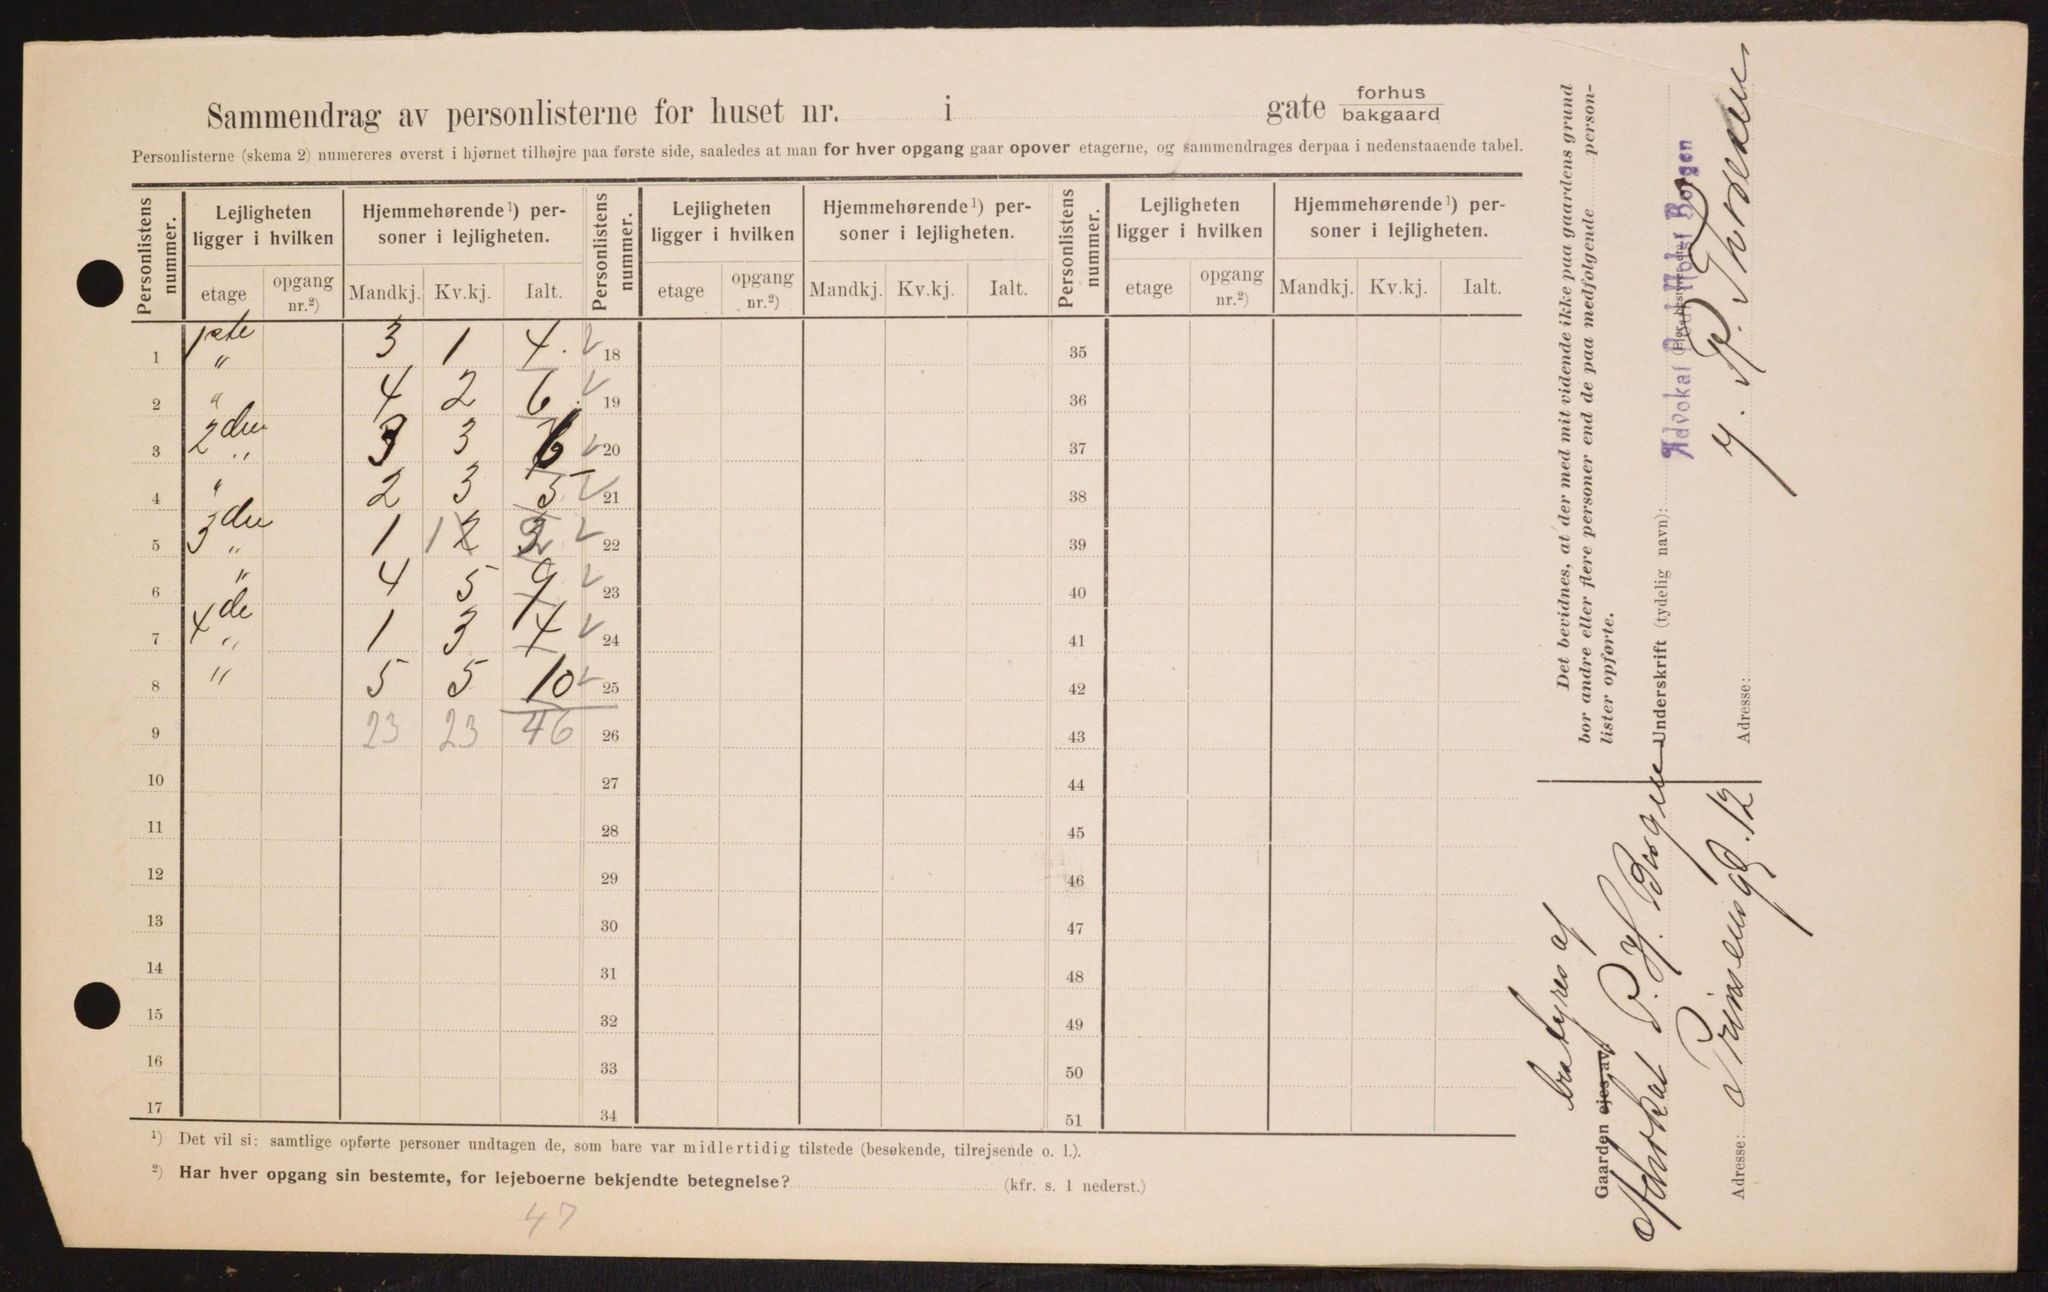 Sammendrag av personlisterne for huset nr. i gate forhus bakgaard
Personlisterne (skema 2) numereres øverst i hjørnet tilhøjre paa første side, saaledes at man for hver opgang gaar opover etagerne, og sammendrages derpaa i nedenstaaende tabel.
Personlistens nummer. Lejligheten ligger i hvilken Hjemmehørende¹) personer i lejligheten. Personlistens nummer. Lejligheten ligger i hvilken Hjemmehørende¹) personer i lejligheten. Personlistens nummer. Lejligheten ligger i hvilken Hjemmehørende¹) personer i lejligheten.
etage opgang nr.²) Mandkj. Kv.kj. Ialt. etage opgang nr.²) Mandkj. Kv.kj. Ialt. etage opgang nr.²) Mandkj. Kv.kj. Ialt.
1 1ste " 3 1 4 18 35
2 " 4 2 6 19 36
3 2den " 3 3 6 20 37
4 " 2 3 5 21 38
5 3die " 1 1 2 3 2 22 39
6 " 4 5 9 23 40
7 4de " 1 3 4 24 41
8 " 5 5 10 25 42
9 23 23 46 26 43
10 27 44
11 28 45
12 29 46
13 30 47
14 31 48
15 32 49
16 33 50
17 34 51
¹) Det vil si: samtlige opførte personer undtagen de, som bare var midlertidig tilstede (besøkende, tilrejsende o. l.).
²) Har hver opgang sin bestemte, for lejeboerne bekjendte betegnelse? (kfr. s. 1 nederst.)
47
Det bevidnes, at der med mit vidende ikke paa gaardens grund
bor andre eller flere personer end de paa medfølgende person-
lister opførte.
Underskrift (tydelig navn):
Advokat Poul Holst Borgen
P. Thoresen
Adresse:
bestyres af
Gaarden ejes av:
Advokat P. H. Borgen
Adresse: Prinsensgd. 12